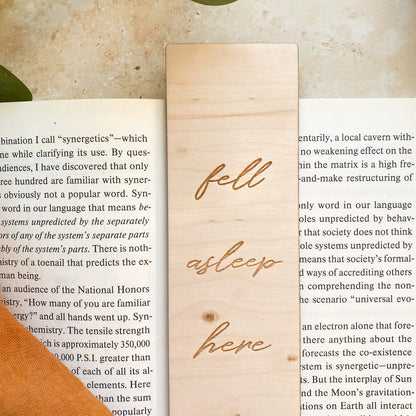 bination I call “synergetics”—which
ne while clarifying its use. By ques-
udiences, I have discovered that only
ree hundred are familiar with syner-
s obviously not a popular word. Syn-
word in our language that means be-
systems unpredicted by the separately
ors of any of the system's separate parts
bly of the system's parts. There is noth-
mistry of a toenail that predicts the ex-
man being.
an audience of the National Honors
nistry, “How many of you are familiar
ergy?” and all hands went up. Syn-
chemistry. The tensile strength
which is approximately 350,000
0,000 P.S.I. greater than
of each of all its al-
elements. Here
than the sum
popularly
fell
asleep
here
entarily, a local cavern with-
no weakening effect on the
hin the matrix is a high fre-
-and-make restructuring of
only word in our language
oles unpredicted by behav-
r that society does not think
ole systems unpredicted by
means that society's formal-
d ways of accrediting others
comprehending the non-
he scenario “universal evo-
an electron alone that fore-
there anything about the
forecasts the co-existence
system is synergetic—unpre-
ts. But the interplay of Sun
and the Moon's gravitation-
ations on Earth all interact